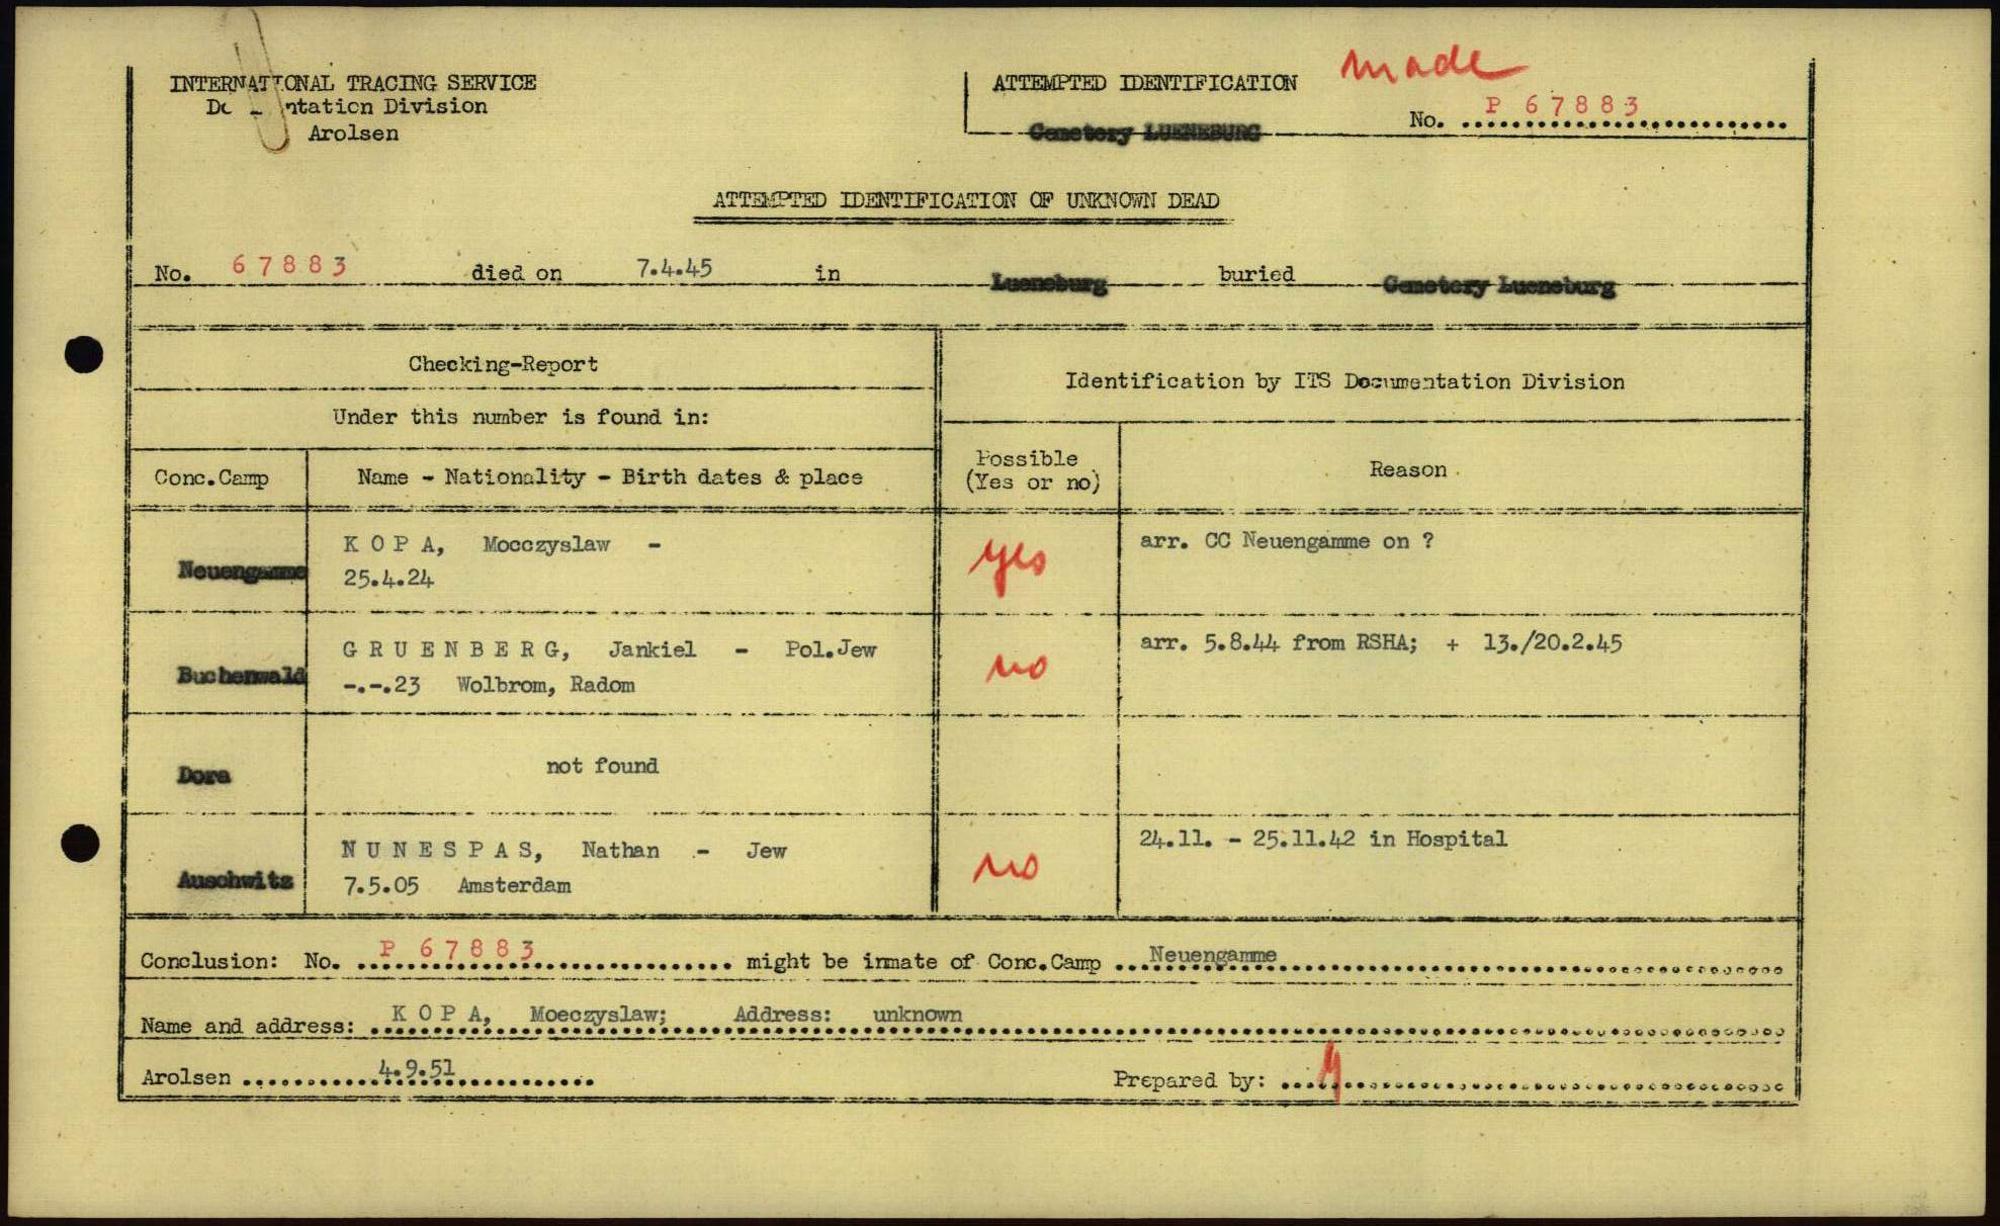 INTERNATIONAL TRACING SERVICE
Documentation Division
Arolsen
ATTEMPTED IDENTIFICATION
made
Cemetery LUENEBURG
No. P 67883
ATTEMPTED IDENTIFICATION OF UNKNOWN DEAD
No. 67883 died on 7.4.45 in Lueneburg buried Cemetery Lueneburg
Checking-Report
Identification by ITS Documentation Division
Under this number is found in:
Conc.Camp
Name - Nationality - Birth dates & place
Possible
(Yes or no)
Reason
Neuengamme
K O P A, Moeczyslaw -
25.4.24
yes
arr. CC Neuengamme on ?
Buchenwald
G R U E N B E R G, Jankiel - Pol.Jew
-.-.23 Wolbrom, Radom
no
arr. 5.8.44 from RSHA; + 13./20.2.45
Dora
not found
Auschwitz
N U N E S P A S, Nathan - Jew
7.5.05 Amsterdam
no
24.11. - 25.11.42 in Hospital
Conclusion: No. P 67883 might be inmate of Conc.Camp Neuengamme
Name and address: K O P A, Moeczyslaw; Address: unknown
Arolsen 4.9.51
Prepared by: